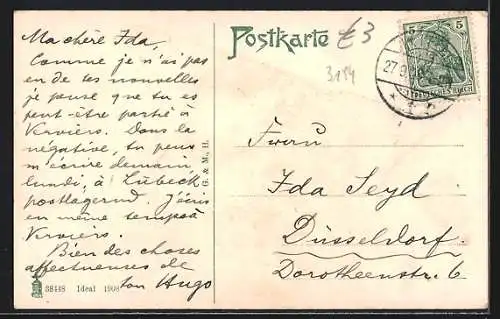 Ma chère Ida,
Comme je n'ai pas
eu de tes nouvelles
je pense que tu es
peut-être partie à
Verviers. Dans la
négative, tu peux
m'écrire demain
lundi, à Lübeck
postlagernd. J'écris
en même temps à
Verviers.
Bien des choses
affectueuses de
ton Hugo
38448 Ideal 1908
G. & M., H.
Postkarte
£3
3184
5 5
27.9.08
DEUTSCHES REICH
Ida Seyd
Düsseldorf.
Dorotheenstr. 6